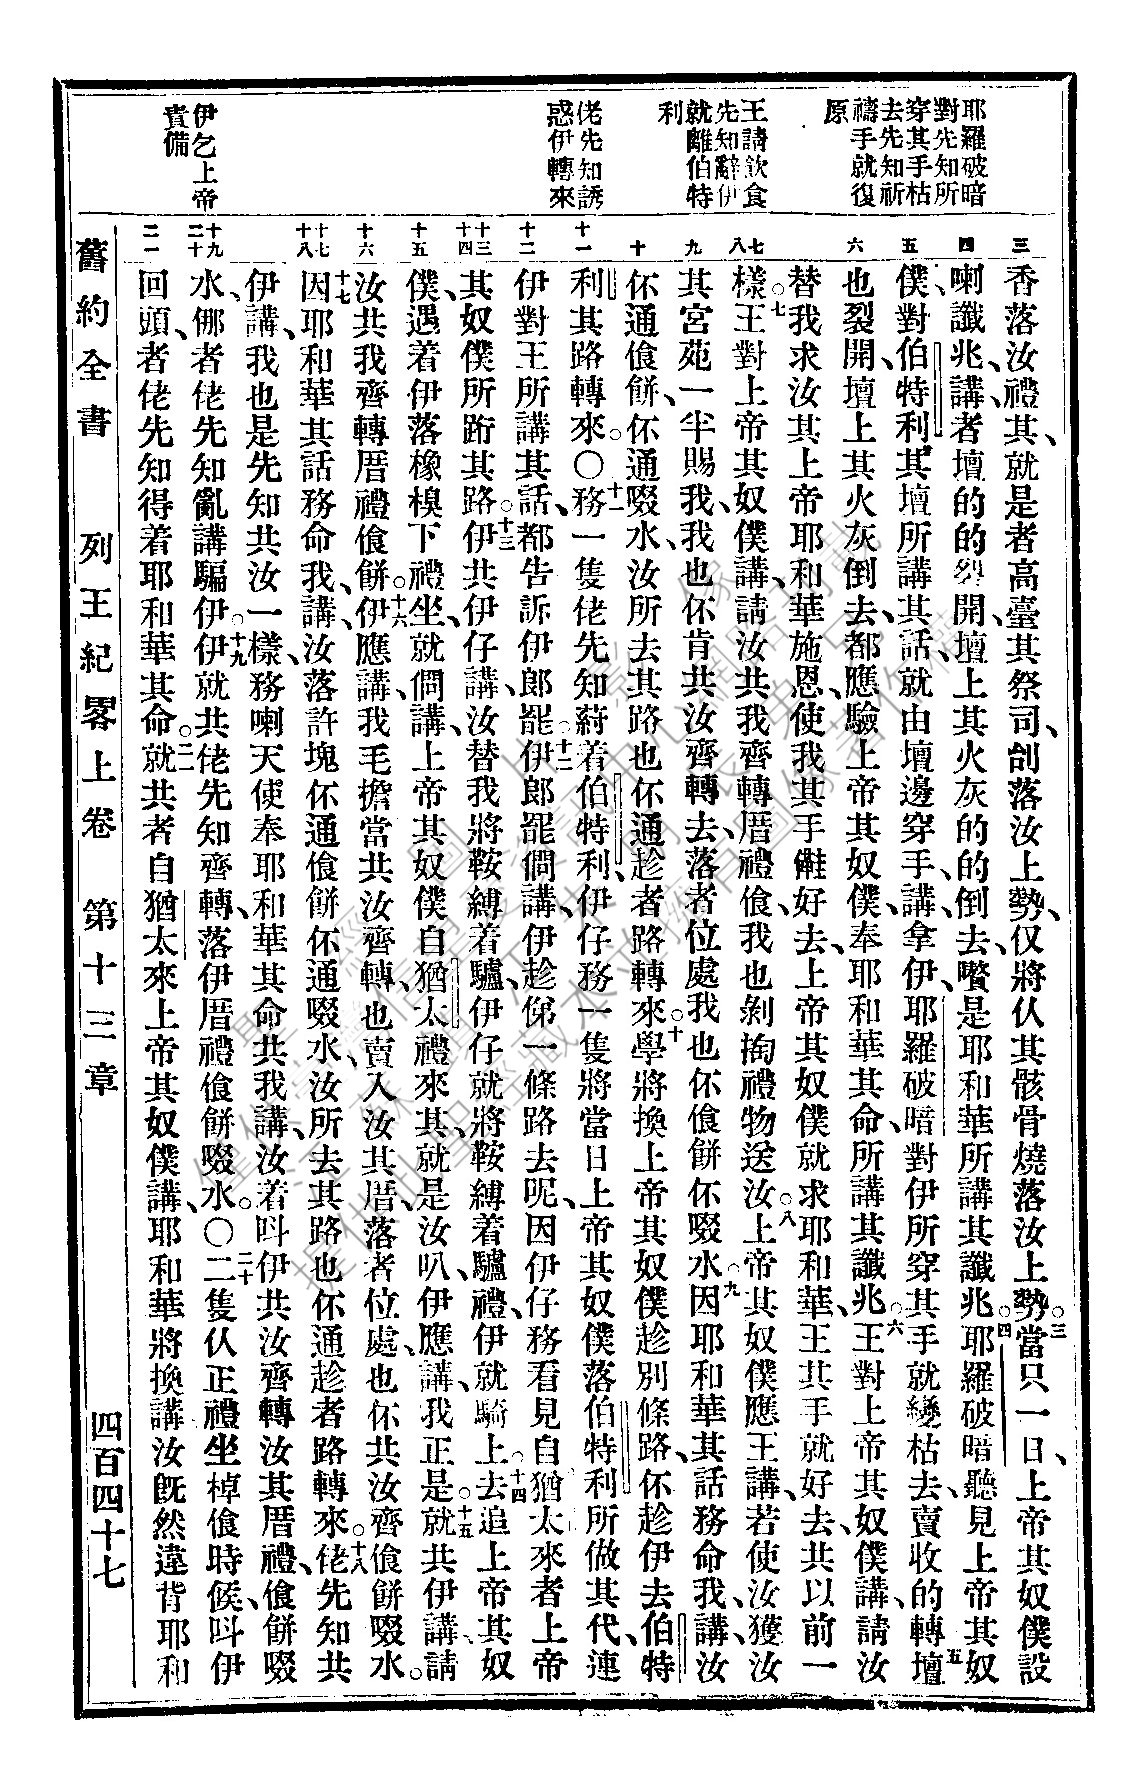 耶羅破暗
對先知所
穿其手枯
去先知祈
禱手就復
原
王請飲食
先知辭伊
就離伯特
利
佬先知誘
惑伊轉來
伊乞上帝
責備
三
四
五
六
七
八
九
十
十一
十二
十三
十四
十五
十六
十七
十八
十九
二十
二一
香落汝禮其、就是者高臺其祭司、刣落汝上勢、仅將仈其骸骨燒落汝上勢。○三當只一日、上帝其奴僕設
喇讖兆、講、者壇的的裂開、壇上其火灰的的倒去、嚽是耶和華所講其讖兆。○四耶羅破暗聽見上帝其奴
僕對伯特利其壇所講其話、就由壇邊穿手、講、拿伊、耶羅破暗對伊所穿其手就變枯去、賣收的轉、五壇
也裂開、壇上其火灰倒去、都應驗上帝其奴僕、奉耶和華其命所講其讖兆。○六王對上帝其奴僕講、請汝
替我求汝其上帝耶和華施恩、使我其手㒰好去、上帝其奴僕就求耶和華、王其手就好去、共以前一
樣。○七王對上帝其奴僕講、請汝共我齊轉厝禮飡、我也剝掏禮物送汝。○八上帝其奴僕應王講、若使汝獲汝
其宮苑一半賜我、我也伓肯共汝齊轉去、落者位處、我也伓飡餅伓啜水。○九因耶和華其話務命我、講、汝
伓通飡餅、伓通啜水、汝所去其路也伓通趁者路轉來。○十學將換上帝其奴僕趁別條路、伓趁伊去伯特
利其路轉來。○十一務一隻佬先知蔚着伯特利、伊仔務一隻將當日上帝其奴僕落伯特利所做其代、連
伊對王所講其話、都告訴伊郎罷。○十二伊郎罷僩講、伊趁俤一條路去呢、因伊仔務看見自猶太來者上帝
其奴僕所跡其路。○十三伊共伊仔講、汝替我將鞍縛着驢、伊仔就將鞍縛着驢禮、伊就騎上。○十四去追上帝其奴
僕、遇着伊落橡樹下禮坐、就僩講、上帝其奴僕自猶太禮來其、就是汝叭、伊應講、我正是。○十五就共伊講、請
汝共我齊轉厝禮飡餅。○十六伊應講、我毛擔當共汝齊轉、也賣入汝其厝、落者位處、也伓共汝齊飡餅啜水。
十七因耶和華其話務命我、講、汝落許塊伓通飡餅伓通啜水、汝所去其路也伓通趁者路轉來。○十八佬先知共
伊講、我也是先知共汝一樣、務喇天使奉耶和華其命共我講、汝着叫伊共汝齊轉汝其厝禮、飡餅啜
水、㑚者佬先知亂講騙伊。○十九伊就共佬先知齊轉、落伊厝禮飡餅啜水。○二十二隻仈正禮坐棹飡時候、叫伊
回頭、者佬先知得着耶和華其命。○二一就共者自猶太來上帝其奴僕講、耶和華將換講、汝既然違背耶和
舊約全書　列王紀畧上卷　第十三章　四百四十七